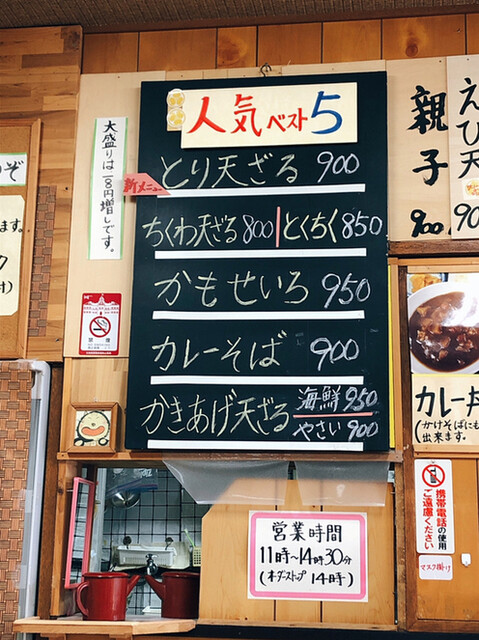 人気ベスト5
とり天ざる 900
新メニュー
ちくわ天ざる800 とくちく850
かもせいろ 950
カレーそば 900
かきあげ天ざる 海鮮950
やさい900
親子
900
えび天
カレー丼
(かけそばにも
出来ます。
携帯電話の使用
ご遠慮ください
マスク掛け
営業時間
11時～14時30分
(オーダーストップ 14時)